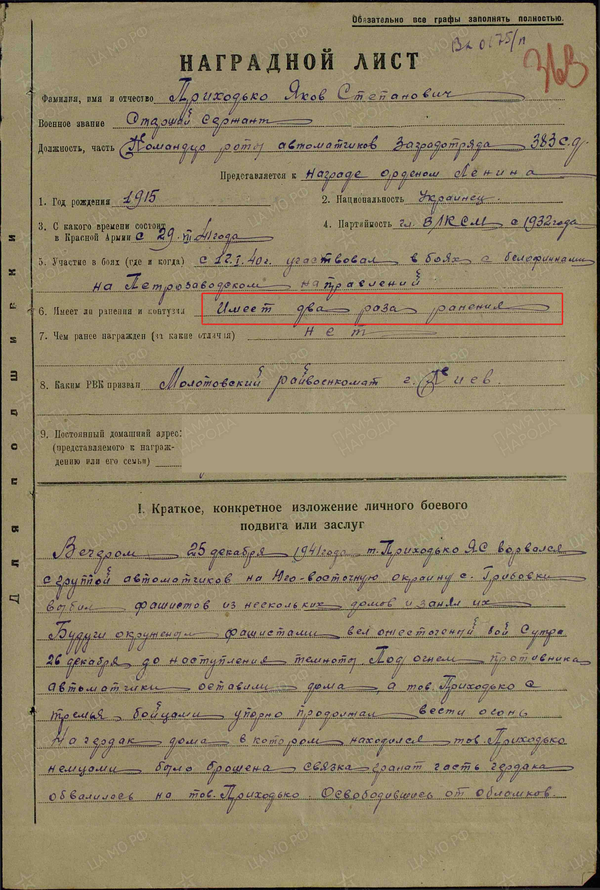 Обязательно все графы заполнять полностью.
НАГРАДНОЙ ЛИСТ
Фамилия, имя и отчество Приходько Яков Степанович
Военное звание Старший сержант
Должность, часть Командир роты автоматчиков Заградотряда 383 с.д.
Представляется к награде орденом Ленина
1. Год рождения 1915 2. Национальность Украинец
3. С какого времени состоит в Красной Армии с 29. 41 года 4. Партийность чл. ВЛКСМ с 1932 года
5. Участие в боях (где и когда) с 12.I.40г. участвовал в боях с белофиннами
на Петрозаводском направлений
6. Имеет ли ранения и контузии Имеет два раза ранения
7. Чем ранее награжден (за какие отличия) нет
8. Каким РВК призван Молотовский райвоенкомат г. Киев.
9. Постоянный домашний адрес:
(представляемого к награж-
дению или его семьи)
Для подшивки
I. Краткое, конкретное изложение личного боевого
подвига или заслуг
Вечером 25 декабря 1941 года т. Приходько Я С ворвался
с группой автоматчиков на Юго-восточную окраину с. Грибовки
выбил фашистов из нескольких домов и занял их
Будучи окружением фашистами вел ожесточений бой С утра
26 декабря до наступления темноты. Под огнем противника
автоматчики оставили дома, а тов. Приходько с
тремья бойцами упорно продолжал вести огонь
На чердак дома в котором находился тов. Приходько
немцами было брошена связка гранат часть чердака
обвалилось на тов. Приходько. Освободившись от обломков.
ЦАМО.РФ
ПАМЯТЬ НАРОДА